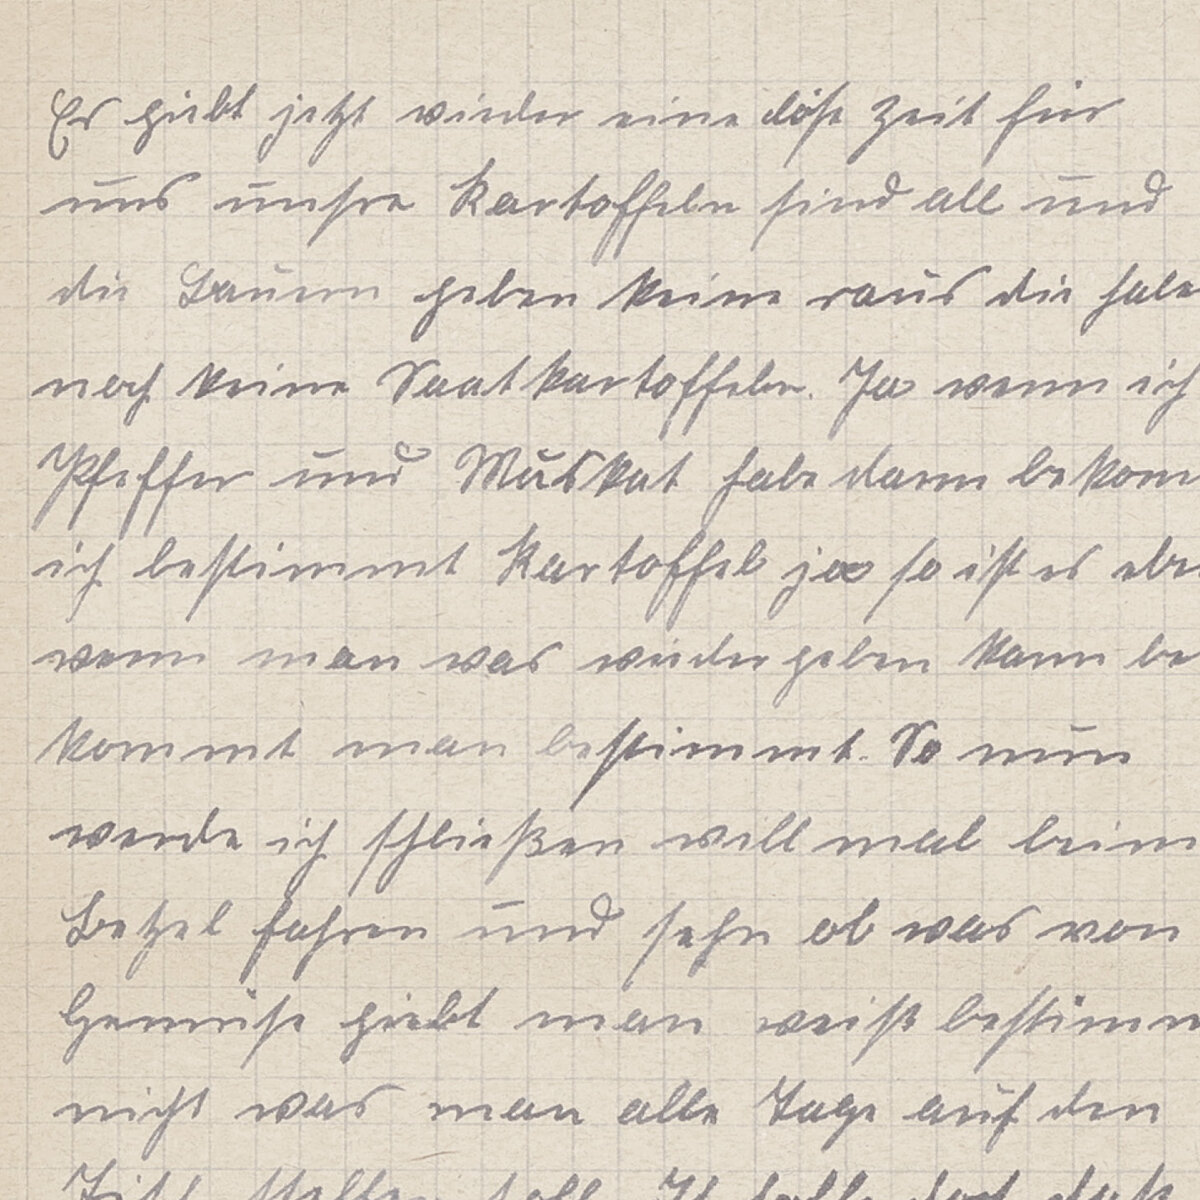 Es giebt jetzt wieder eine döse Zeit für
uns unsre Kartoffeln sind all und
die Bauern geben keine raus die habe
noch keine Saatkartoffeln. Ja wenn ich
Pfeffer und Muskat habe dann bekom
ich bestimmt Kartoffel ja so ist es ebe
wenn man was wiedergeben kann be
kommt man bestimmt. So nun
werde ich schließen will mal beim
Betzel fahren und sehn ob was von
Gemüse giebt man weiß bestimm
nicht was man alle Tage auf den
Tisch stellen soll.